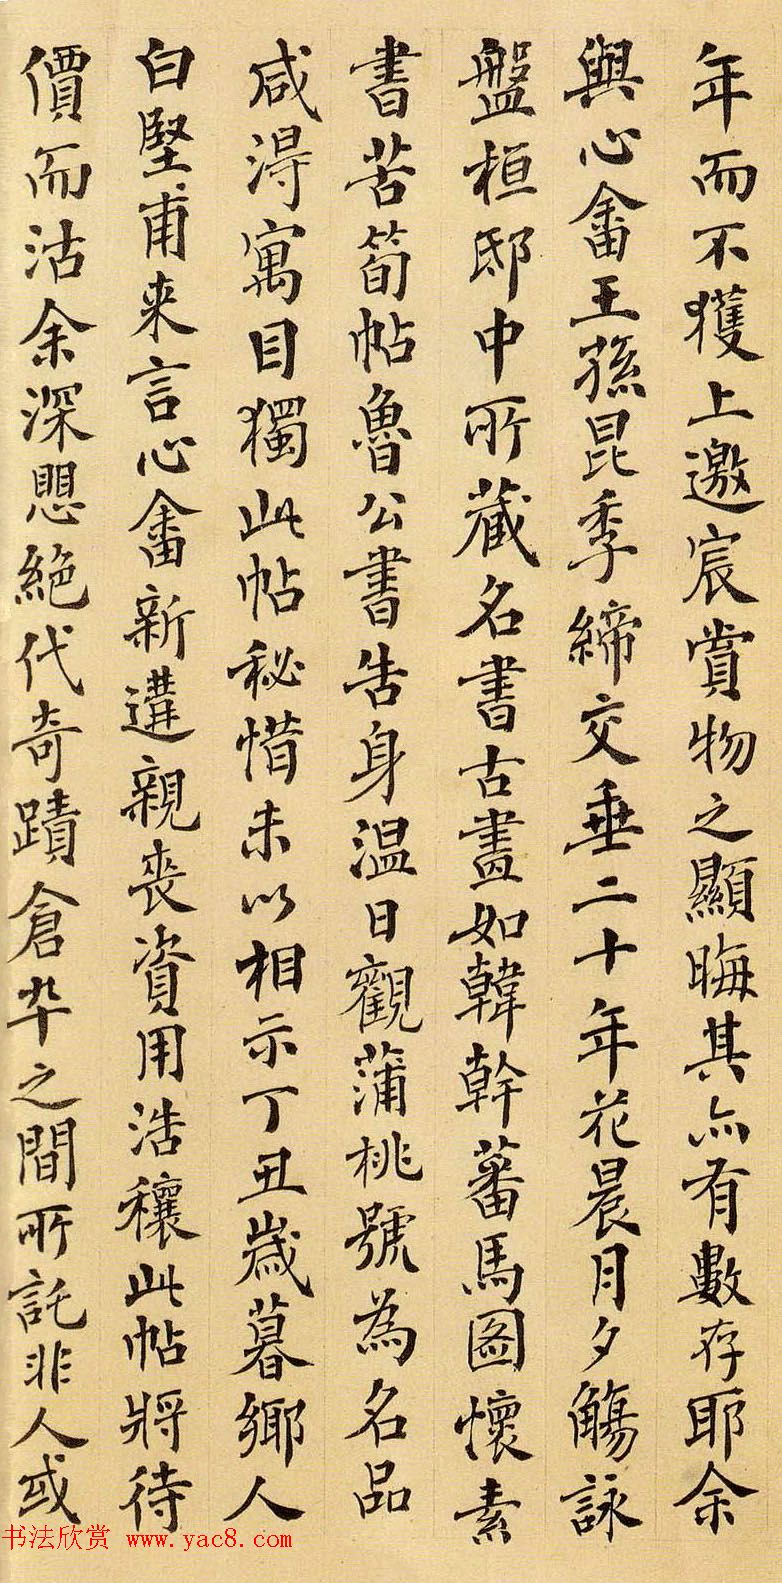 年而不獲上邀宸賞物之顯晦其亦有數存耶余
與心畬王孫昆季締交垂二十年花晨月夕觴詠
盤桓邸中所藏名書古畫如韓幹蕃馬圖懷素
書苦筍帖魯公書告身溫日觀蒲桃號為名品
咸得寓目獨此帖秘惜未以相示丁丑歲暮鄉人
白堅甫来言心畬新遘親喪資用浩穰此帖將待
價而沽余深愳絕代奇蹟倉卒之間所託非人或
书法欣赏 www.yac8.com